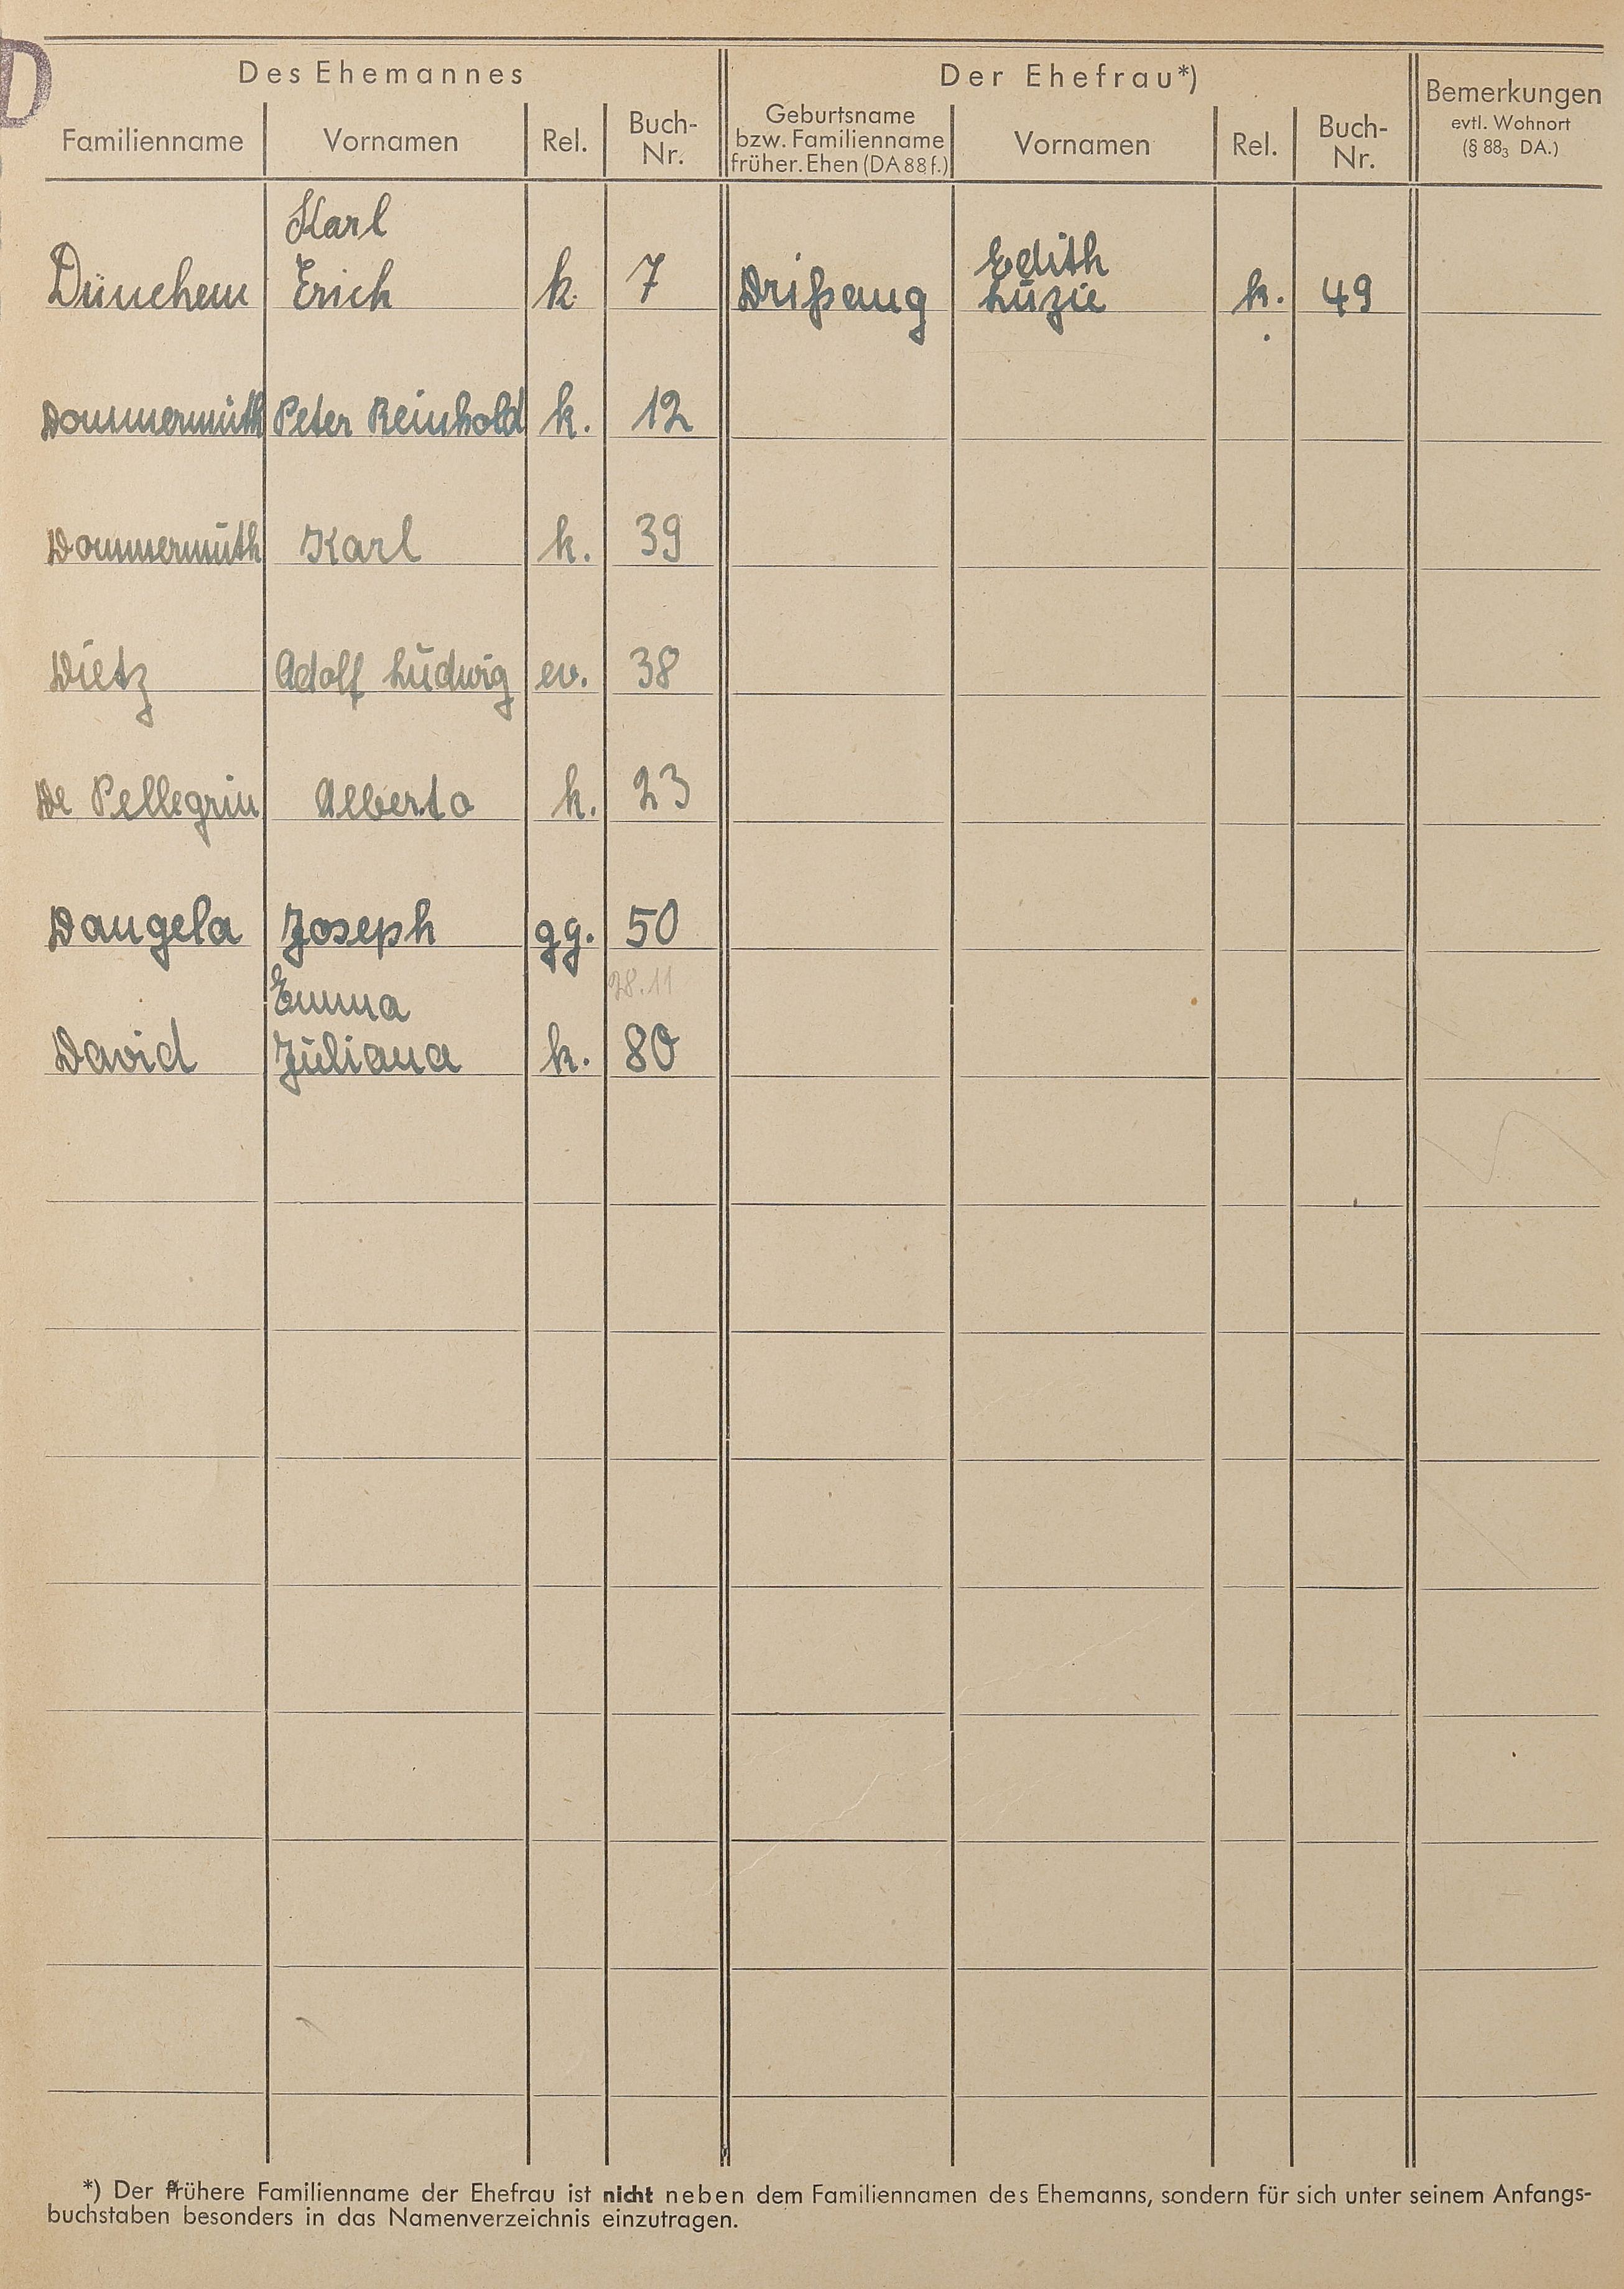 D
Des Ehemannes
Der Ehefrau*)
Bemerkungen
evtl. Wohnort
(§ 88₃ DA.)
Familienname
Vornamen
Rel.
Buch-
Nr.
Geburtsname
bzw. Familienname
früher. Ehen (DA 88 f.)
Vornamen
Rel.
Buch-
Nr.
Karl
Edith
Dünchem Erich k. 7 Drißeng Luzie k. 49
Dommermuth Peter Reinhold k. 12
Dommermuth Karl k. 39
Dietz Adolf Ludwig ev. 38
De Pellegrin Alberto k. 23
Dangela Joseph gg. 50
28.11
Emma
David Juliana k. 80
*) Der frühere Familienname der Ehefrau ist nicht neben dem Familiennamen des Ehemanns, sondern für sich unter seinem Anfangs-
buchstaben besonders in das Namenverzeichnis einzutragen.